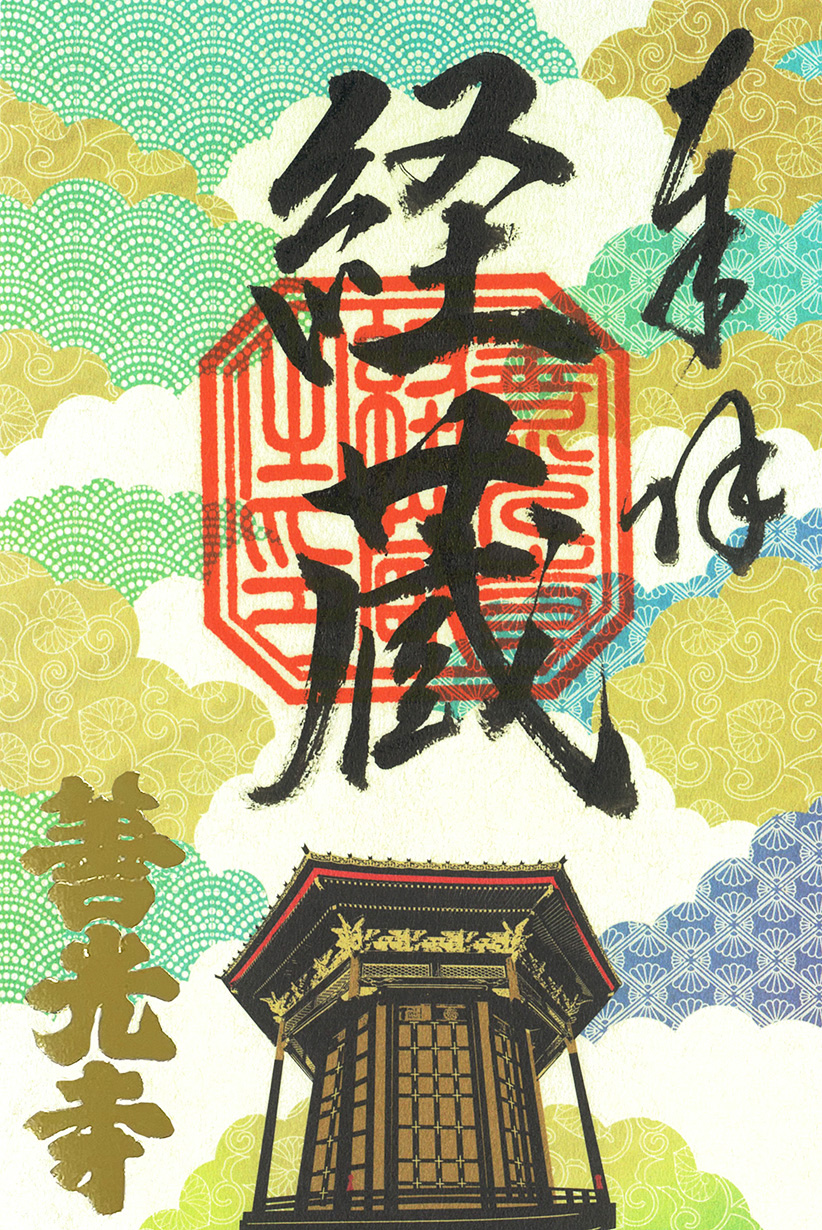 奉拝
経蔵
善光寺